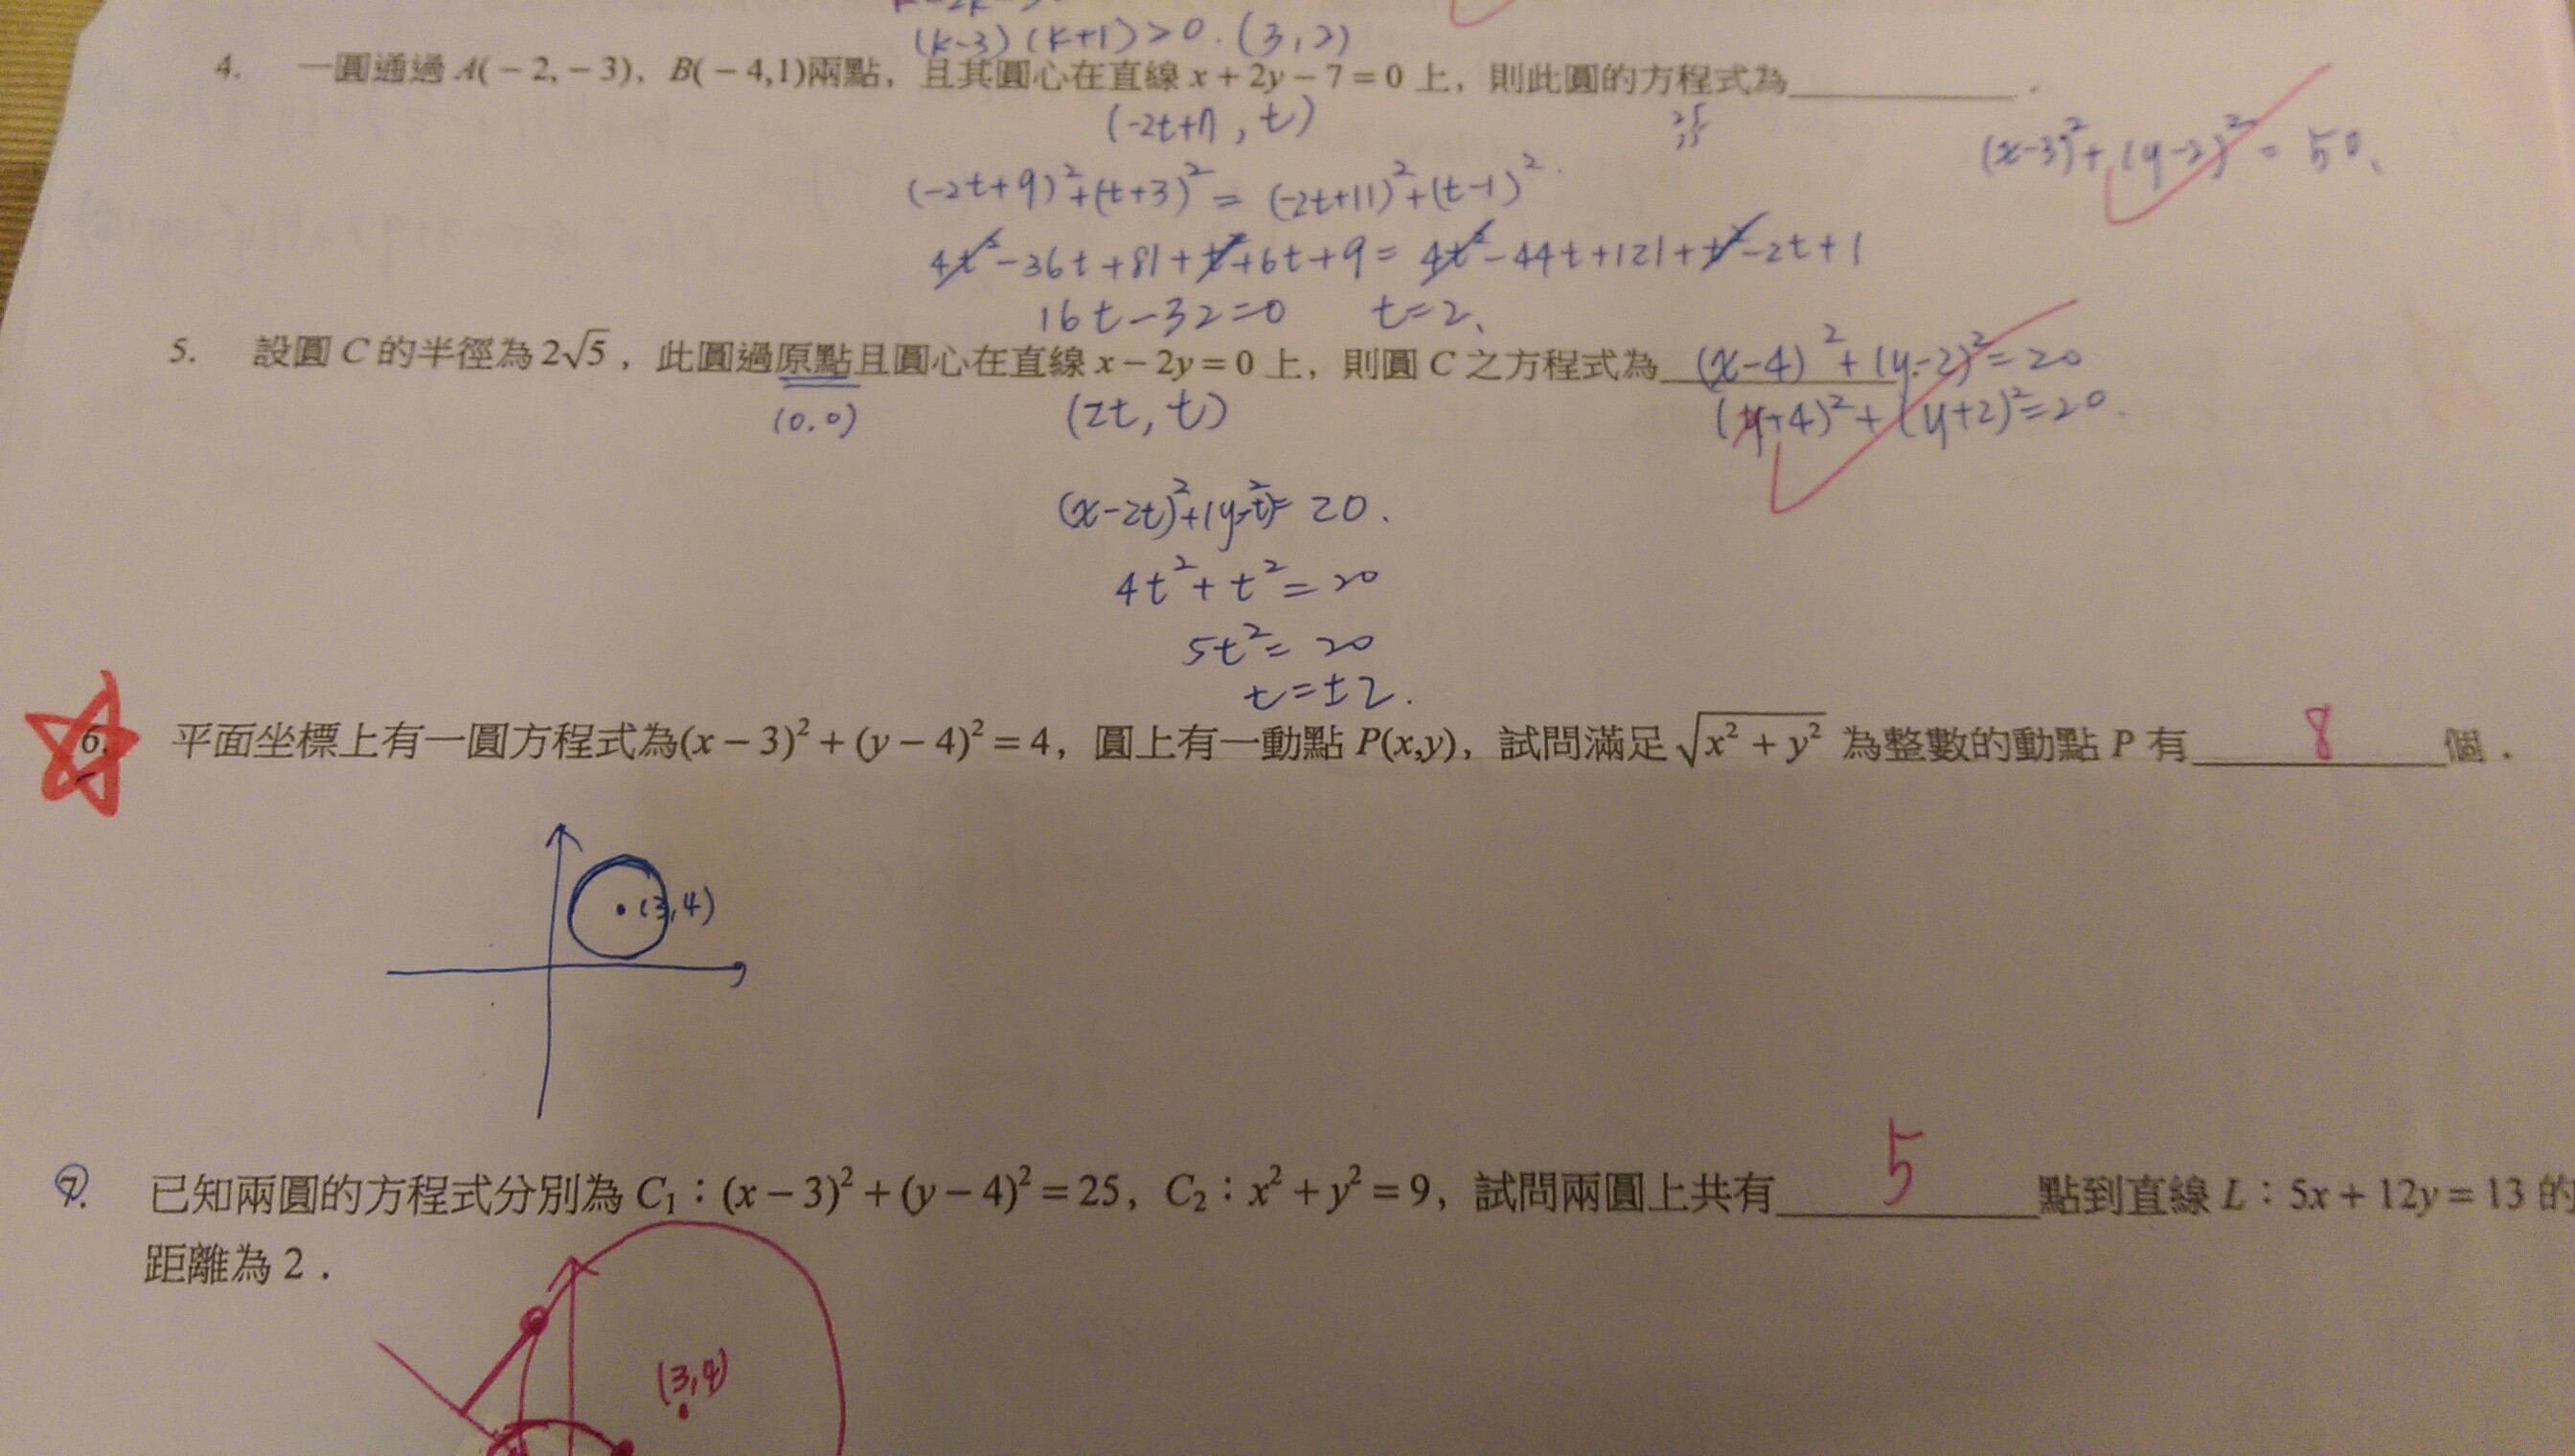 (k-3)(k+1)>0. (3,2)
4. 一圓通過 A(−2,−3), B(−4,1)兩點, 且其圓心在直線 x+2y−7=0 上, 則此圓的方程式為________.
(-2t+7, t)
(x-3)²+(y-2)²=50.
(-2t+9)²+(t+3)²=(-2t+11)²+(t-1)².
4t²-36t+81+t²+6t+9=4t²-44t+121+t²-2t+1
16t-32=0 t=2.
5. 設圓 C 的半徑為 2√5, 此圓過原點且圓心在直線 x−2y=0 上, 則圓 C 之方程式為 (x-4)²+(y-2)²=20
(0,0) (2t, t) (x+4)²+(y+2)²=20.
(x-2t)²+(y-t)²=20.
4t²+t²=20
5t²=20
t=±2.
6. 平面坐標上有一圓方程式為(x−3)²+(y−4)²=4, 圓上有一動點 P(x,y), 試問滿足 √(x²+y²) 為整數的動點 P 有 8 個.
(3,4)
7. 已知兩圓的方程式分別為 C₁:(x−3)²+(y−4)²=25, C₂:x²+y²=9, 試問兩圓上共有 5 點到直線 L:5x+12y=13 的
距離為 2.
(3,4)